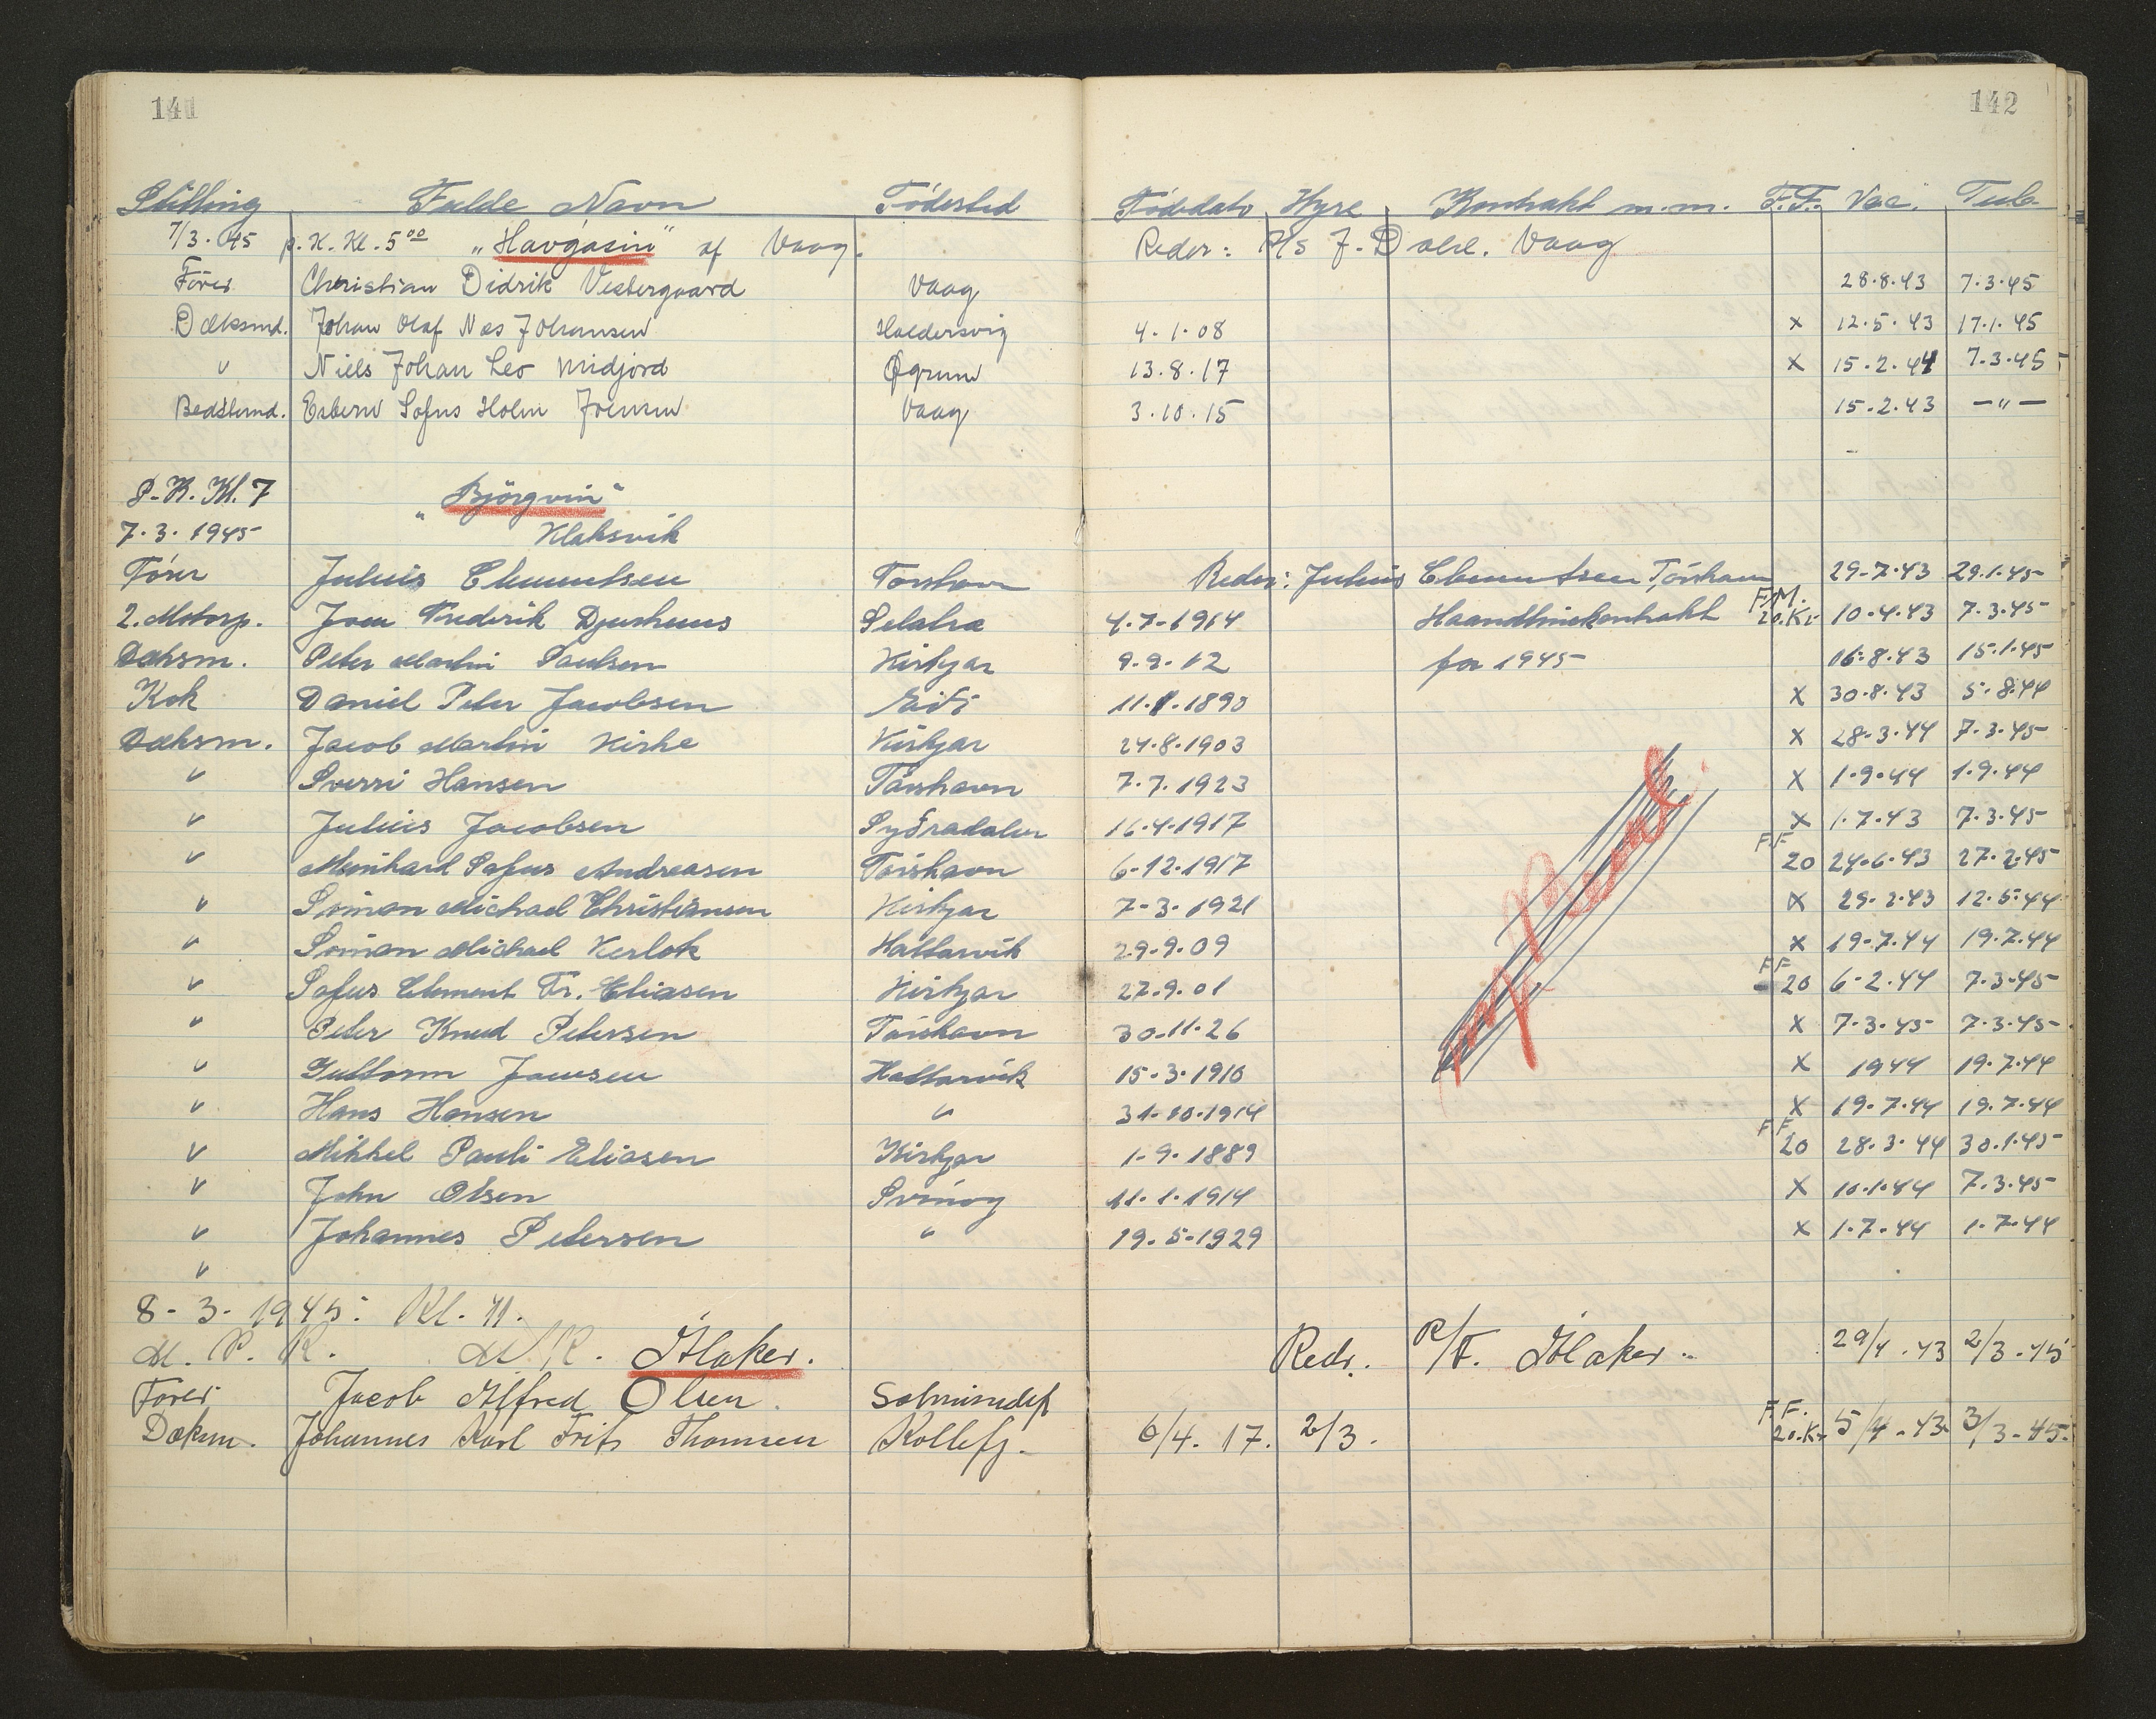 141
142
Stilling Fulde Navn Fødested Fødedato Hyre Kontrakt m.m. F.F. Vac. Tub.
7/3. 45 p. K. Kl. 5 00 "Havgasin" af Vaag. Reder: P/s J. Dahl. Vaag
Fører Christian Didrik Vestergaard Vaag 28.8.43 7.3.45
Dæksmd. Johan Olaf Næs Johansen Haldersvig 4.1.08 x 12.5.43 17.1.45
" Niels Johan Leo Midjord Øgrum 13.8.17 x 15.2.44 7.3.45
Bedstemd. Esbern Sofus Holm Joensen Vaag 3.10.15 15.2.43 —"—
P.K. Kl. 7 "Björgvin"
7.3.1945 Klaksvik
Fører Julius Clementsen Torshavn Reder: Julius Clementsen, Tórshavn 29-7-43 29.1.45
2. Motorp. Joen Frederik Djurhuus Selatra 4.7-1914 Haandlinekontrakt F.M. 20.Kr 10.4.43 7.3.45
Dæksm. Peter Martin Poulsen Kirkjar 9.9.12 for 1945 16.8.43 15.1.45
Kok Daniel Peter Jacobsen Eiði 11.1.1890 x 30.8.43 5.8.44
Dæksm. Jacob Martin Kirke Kirkjar 24.8.1903 x 28-3.44 7.3.45
" Sverri Hansen Tórshavn 7.7.1923 x 1.9.44 1.9.44
" Julius Jacobsen Syðradalur 16.4.1917 x 1.7.43 7.3.45
" Meinhard Sofus Andreasen Tórshavn 6-12.1917 F.F 20 24.6.43 27.2.45
" Simon Michael Christiansen Kirkjar 7-3.1921 x 29.2.43 12.5.44
" Simon Michael Kerlok Hattarvik 29.9.09 x 19-7.44 19.7.44
" Sofus Clement Fr. Eliasen Kirkjar 27.9.01 F.F 20 6-2.44 7.3.45
" Peter Knud Petersen Tórshavn 30.11.26 x 7-3.45 7.3.45
" Guttorm Joensen Hattarvik 15-3.1910 x 1944 19.7.44
" Hans Hansen " 31-10.1914 x 19.7.44 19.7.44
" Mikkel Pauli Eliasen Kirkjar 1-9.1889 F.F. 20 28.3.44 30.1.45
" John Olsen Svinoy 11.1.1914 x 10.1.44 7.3.45
" Johannes Petersen " 19.5-1929 x 1.7.44 1.7.44
"
8-3-1945. Kl. 11.
M. P. K. M/K. Ílaker. Redr. P/F. Ílaker.. 29/4.43 2/3.45
Fører Jacob Alfred Olsen.
Dæksm. Johannes Karl Frits Thomsen Kollefj. 6/4.17. 2/3. F.F. 20.Kr 5/4.43 3/3-45.